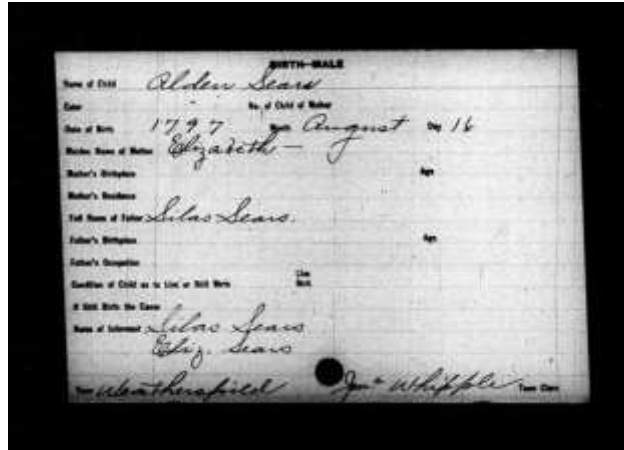 BIRTH—MALE
Name of Child Alden Sears
Color No. of Child of Mother
Date of Birth 1797 Month August Day 16
Maiden Name of Mother Elizabeth —
Mother's Birthplace Age
Mother's Residence
Full Name of Father Silas Sears.
Father's Birthplace Age
Father's Occupation
Condition of Child as to Live or Still Birth Live
Still
If Still Birth the Cause
Name of Informant Silas Sears
Eliz. Sears
Town Weathersfield Jno Whipple Town Clerk